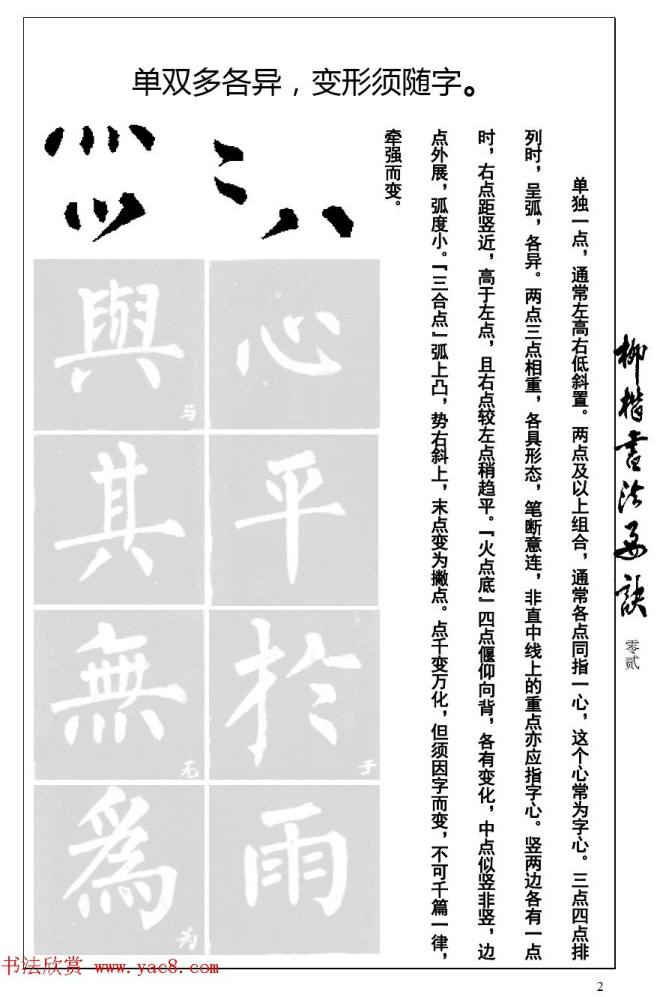 单双多各异，变形须随字。
单独一点，通常左高右低斜置。两点及以上组合，通常各点同指一心，这个心常为字心。三点四点排
列时，呈弧，各异。两点三点相重，各具形态，笔断意连，非直中线上的重点亦应指字心。竖两边各有一点
时，右点距竖近，高于左点，且右点较左点稍趋平。『火点底』四点偃仰向背，各有变化，中点似竖非竖，边
点外展，弧度小。『三合点』弧上凸，势右斜上，末点变为撇点。点千变万化，但须因字而变，不可千篇一律，
牵强而变。
心
平
於
于
雨
與
与
其
無
无
為
为
柳楷书法要诀
零贰
书法欣赏 www.yac8.com
2